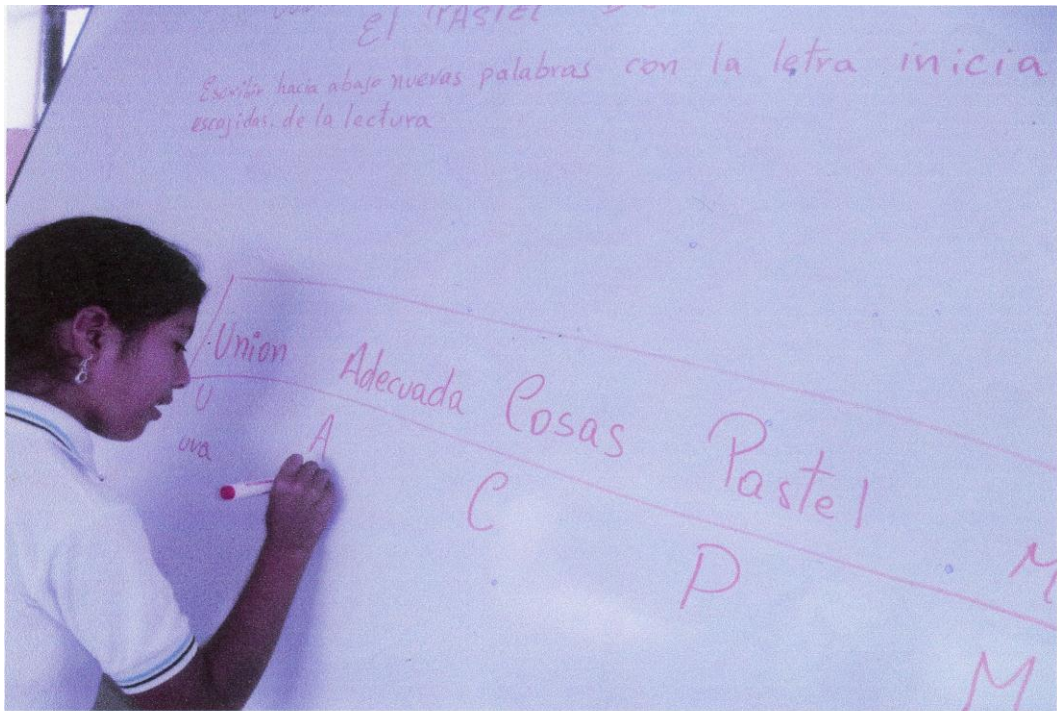 El PASTEL
Escribir hacia abajo nuevas palabras con la letra inicia
escojidas de la lectura
Union Adecuada Cosas Pastel M
U A C P M
uva